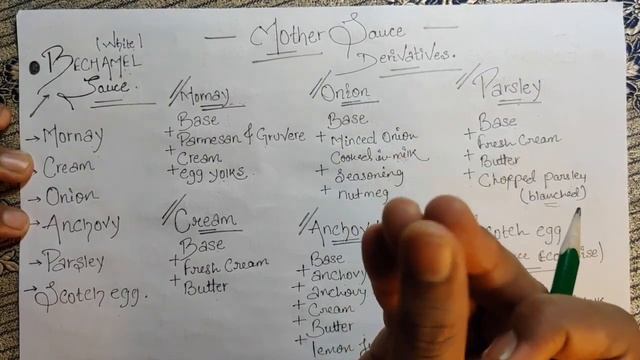 Mother Sauce
Derivatives.
(White)
BECHAMEL
Sauce.
→ Mornay
→ Cream
→ Onion
→ Anchovy
→ Parsley
→ Scotch egg.
Mornay
Base
+ Parmesan & Gruvere
+ Cream
+ egg yolks
Cream
Base
+ Fresh Cream
+ Butter
Onion
Base
+ Minced Onion
Cooked in milk
+ Seasoning
+ nutmeg
Base
+ anchovy
+ anchovy
+ Cream
+ Butter
+ lemon
Parsley
Base
+ Fresh Cream
+ Butter
+ Chopped parsley
(blanched)
egg